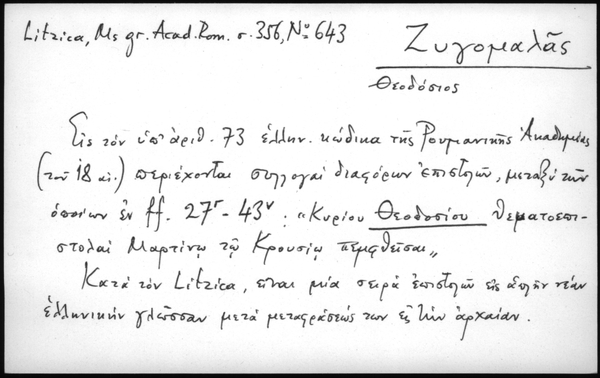 Litzica, Ms gr. Acad. Rom. σ. 356, Nº 643
Ζυγομαλᾶς
Θεοδόσιος
Εἰς τὸν ὑπ' ἀριθ. 73 ἑλλην. κώδικα τῆς Ρουμανικῆς Ἀκαδημίας
(τοῦ 18 αἰ.) περιέχονται συλλογαὶ διαφόρων ἐπιστολῶν, μεταξὺ τῶν
ὁποίων ἐν ff. 27r - 43v : «Κυρίου Θεοδοσίου θεματοεπι-
στολαὶ Μαρτίνῳ τῷ Κρουσίῳ πεμφθεῖσαι»
Κατὰ τὸν Litzica, εἶναι μία σειρὰ ἐπιστολῶν εἰς ἁπλῆν νέαν
ἑλληνικὴν γλῶσσαν μετὰ μεταφράσεώς των εἰς τὴν ἀρχαίαν.